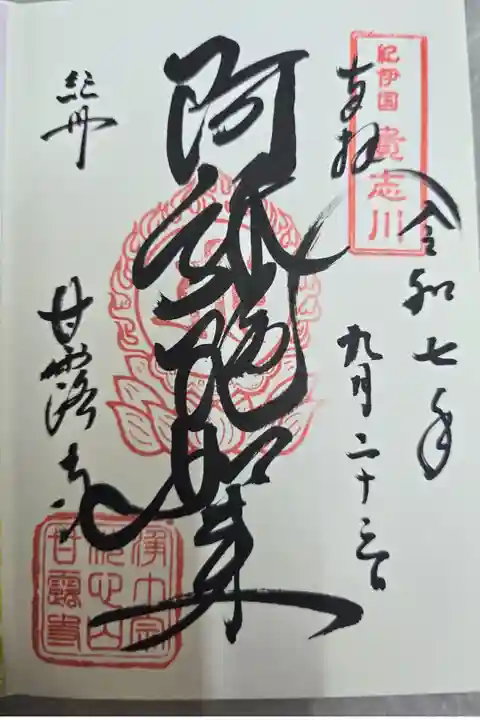 紀伊国 貴志川
奉拝
令和七年
九月二十三日
阿弥陀如来
紀州
甘露寺
浄土宗
池之内
甘露寺